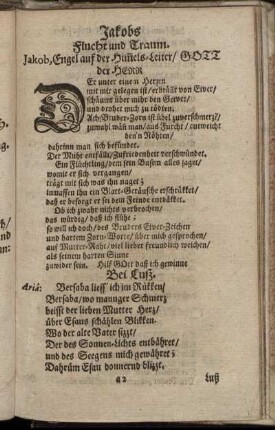 Jakobs
Flucht und Traum.
Jakob, Engel auf der Himels-Leiter/ GOTT
der HERR
DEr unter einem Herzen
mit mir gelegen ist/ erbrannt von Eiver/
schäumt über mihr den Geiver/
und drohet mich zu tödten.
Ach! Bruder-Zorn ist übel zuverschmerz/
zumahl wañ man/ aus Furcht/ entweicht
den'n Röhten/
dahrinn man sich befindet.
Der Muht entfällt/ Zufriedenheit verschwindet.
Ein Flüchtling/ dem sein Busem alles saget/
womit er sich vergangen/
trägt mit sich was ihn naget;
inmassen ihn ein Blatt-Geräusche erschrükket/
daß er besorget er sei dem Feinde entdükket.
Ob ich zwahr nichts verbrochen/
das würdig/ daß ich fliehe;
so will ich doch/ des Bruders Eiver-Zeichen
und hartem Zorn-Worte/ über mich gesprochen/
auf Mutter-Raht/ viel lieber freundlich weichen/
als seinem harten Sinne
zuwider sein. Hilf GOtt daß ich gewinne
Bei Luß.
Aria: Bersaba lieff ich im Rükken/
Bersaba/ wo manniger Schmerz
heisst der lieben Mutter Herz/
über Esaus schählen Blikken.
Wo der alte Vater sizzt/
Der des Sonnen-Lichts entbähret/
und des Seegens mich gewähret;
Dahrüm Esau donnernd blizzt.
a2 Luß